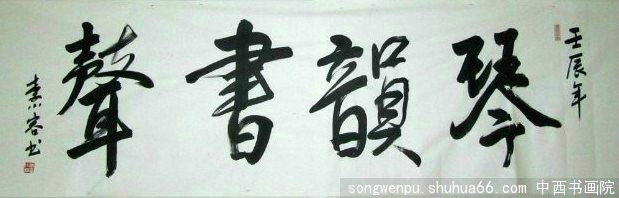 壬辰年
琴韻書聲
素容书
songwenpu.shuhua66.com 中西书画院